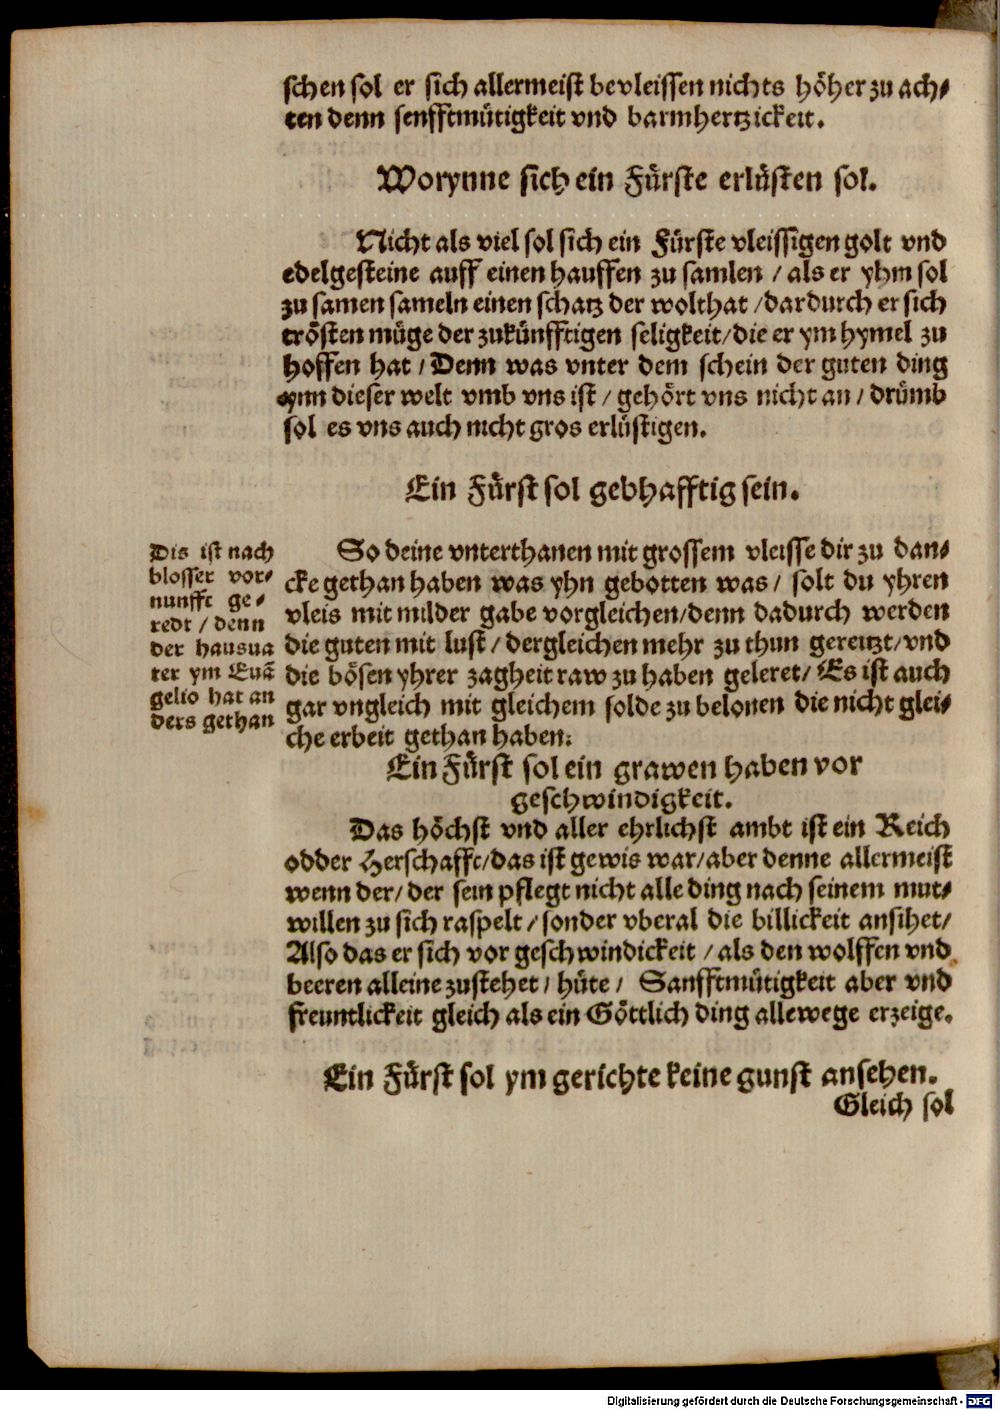 schen sol er sich allermeist bevleissen nichts höher zu ach⸗
ten denn senfftmütigkeit vnd barmhertzickeit.
Worynne sich ein Fürste erlüsten sol.
Nicht als viel sol sich ein Fürste vleissigen golt vnd
edelgesteine auff einen hauffen zu samlen / als er yhm sol
zu samen sameln einen schatz der wolthat / dardurch er sich
trösten müge der zukünfftigen seligkeit / die er ym hymel zu
hoffen hat / Denn was vnter dem schein der guten ding
ynn dieser welt vmb vns ist / gehört vns nicht an / drümb
sol es vns auch nicht gros erlüstigen.
Ein Fürst sol gebhafftig sein.
So deine vnterthanen mit grossem vleisse dir zu dan⸗
cke gethan haben was yhn gebotten was / solt du yhren
vleis mit milder gabe vorgleichen / denn dadurch werden
die guten mit lust / dergleichen mehr zu thun gereutzt / vnd
die bösen yhrer zagheit raw zu haben geleret / Es ist auch
gar vngleich mit gleichem solde zu belonen die nicht glei⸗
che erbeit gethan haben.
Dis ist nach
blosser vor⸗
nunfft ge⸗
redt / denn
der hausua
ter ym Euã
gelio hat an
ders gethan
Ein Fürst sol ein grawen haben vor
geschwindigkeit.
Das höchst vnd aller ehrlichst ambt ist ein Reich
odder Herschafft / das ist gewis war / aber denne allermeist
wenn der / der sein pflegt nicht alle ding nach seinem mut⸗
willen zu sich raspelt / sonder vberal die billickeit ansihet /
Also das er sich vor geschwindickeit / als den wolffen vnd
beeren alleine zustehet / hüte / Sanfftmütigkeit aber vnd
freuntlickeit gleich als ein Göttlich ding allewege erzeige.
Ein Fürst sol ym gerichte keine gunst ansehen.
Gleich sol
Digitalisierung gefördert durch die Deutsche Forschungsgemeinschaft - DFG